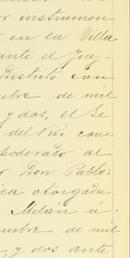 r instrumen
en la Villa
ante el Juz
Distrito con
mbre de mil
y dos, el Se
del Rio cons
apoderado al
Don Pablo
ica otorgada
Milán á
mbre de mil
y dos ante